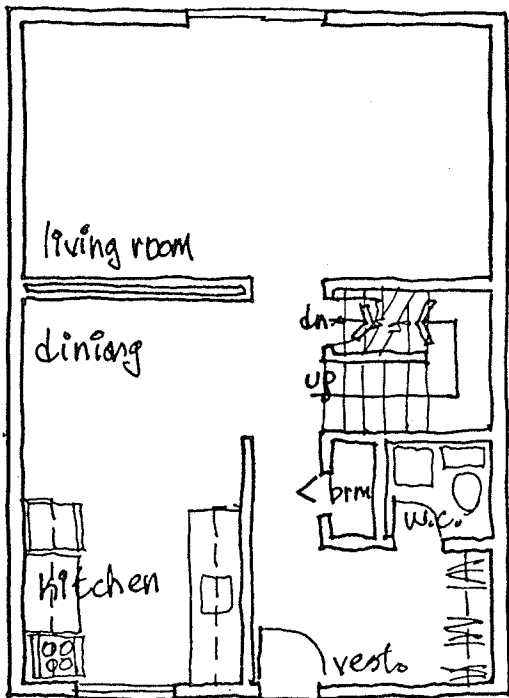 living room
diniang
dn
up
< brm
w.c.
kitchen
vest.